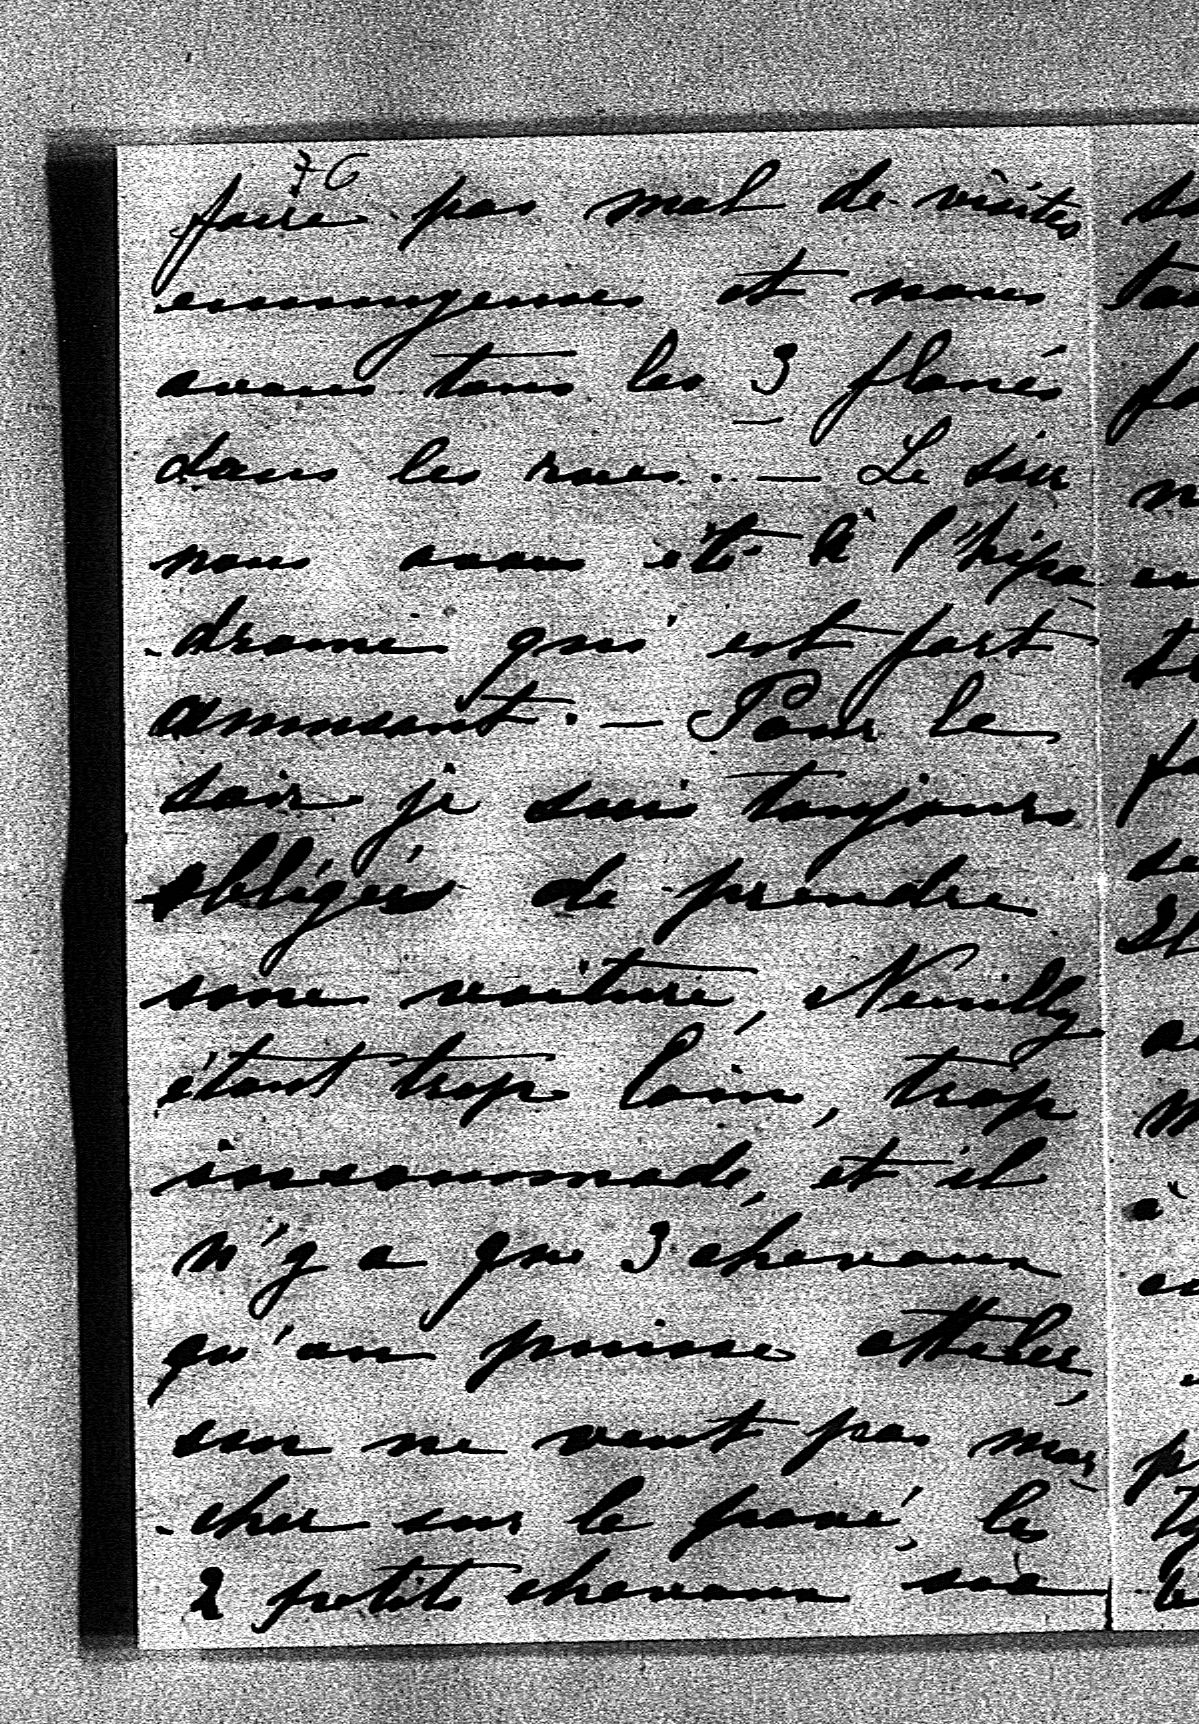 76
faire pas mal de visites
ennuyeuses et nous
avons tous les 3 flanés
dans les rues. — Le soir
nous avons été à l'hipo-
-drome qui est fort
amusant. — Pour le
soir je suis toujours
obligée de prendre
une voiture, Neuilly
étant trop loin, trop
incommode, et il
n'y a que 3 chevaux
qu'on puisse atteler,
un ne veut pas mar-
-cher sur le pavé, les
2 petits chevaux